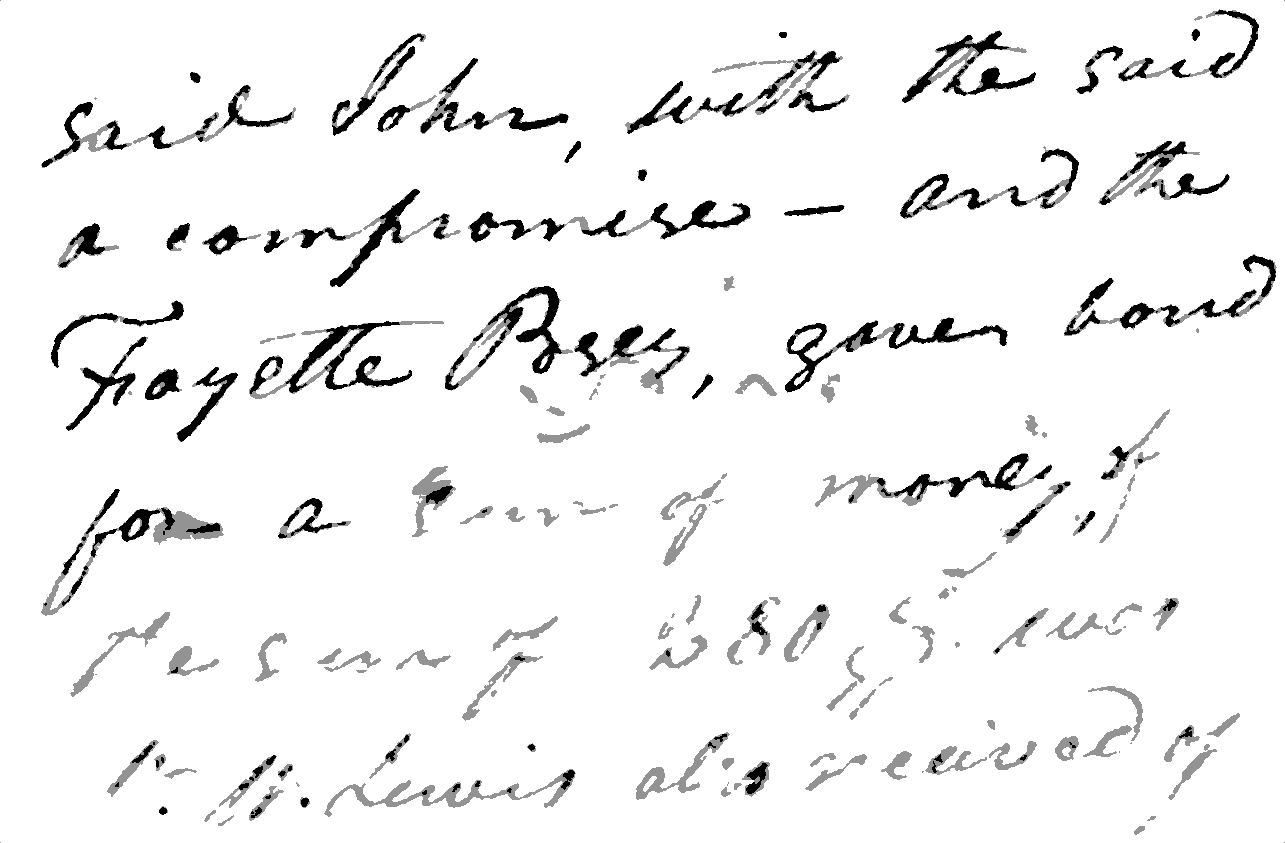 said John, with the said
a compromise — and the
Fayette Posey, gave bond
for a sum of money, of
the sum of was
Lewis also received of